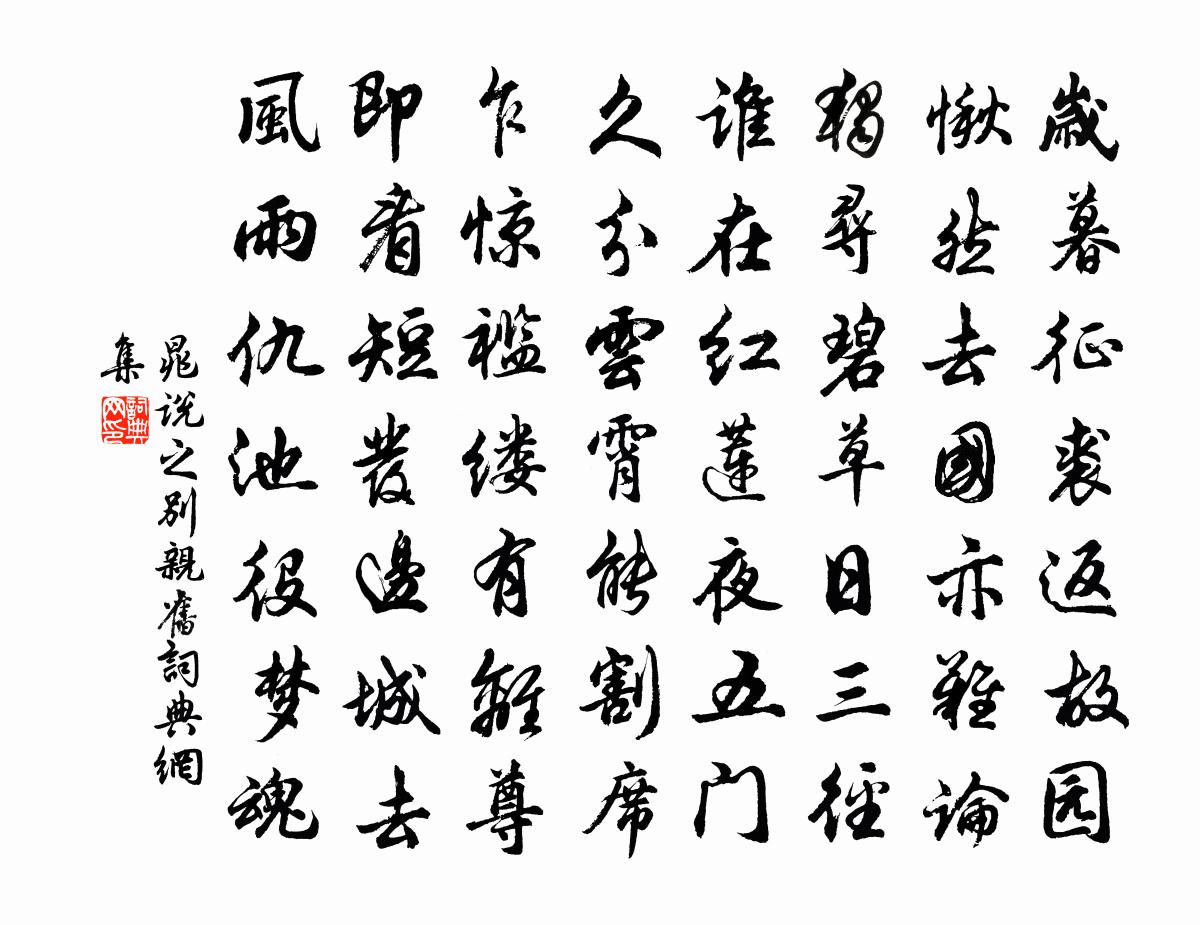 歲暮征裘返故园
愀然去國亦難論
獨尋碧草日三徑
谁在红蓮夜五门
久分雲霄能割席
乍惊褴缕有離尊
即看短發邊城去
風雨仇池役梦魂
晁说之别親舊詞典網
集
詞典
网印